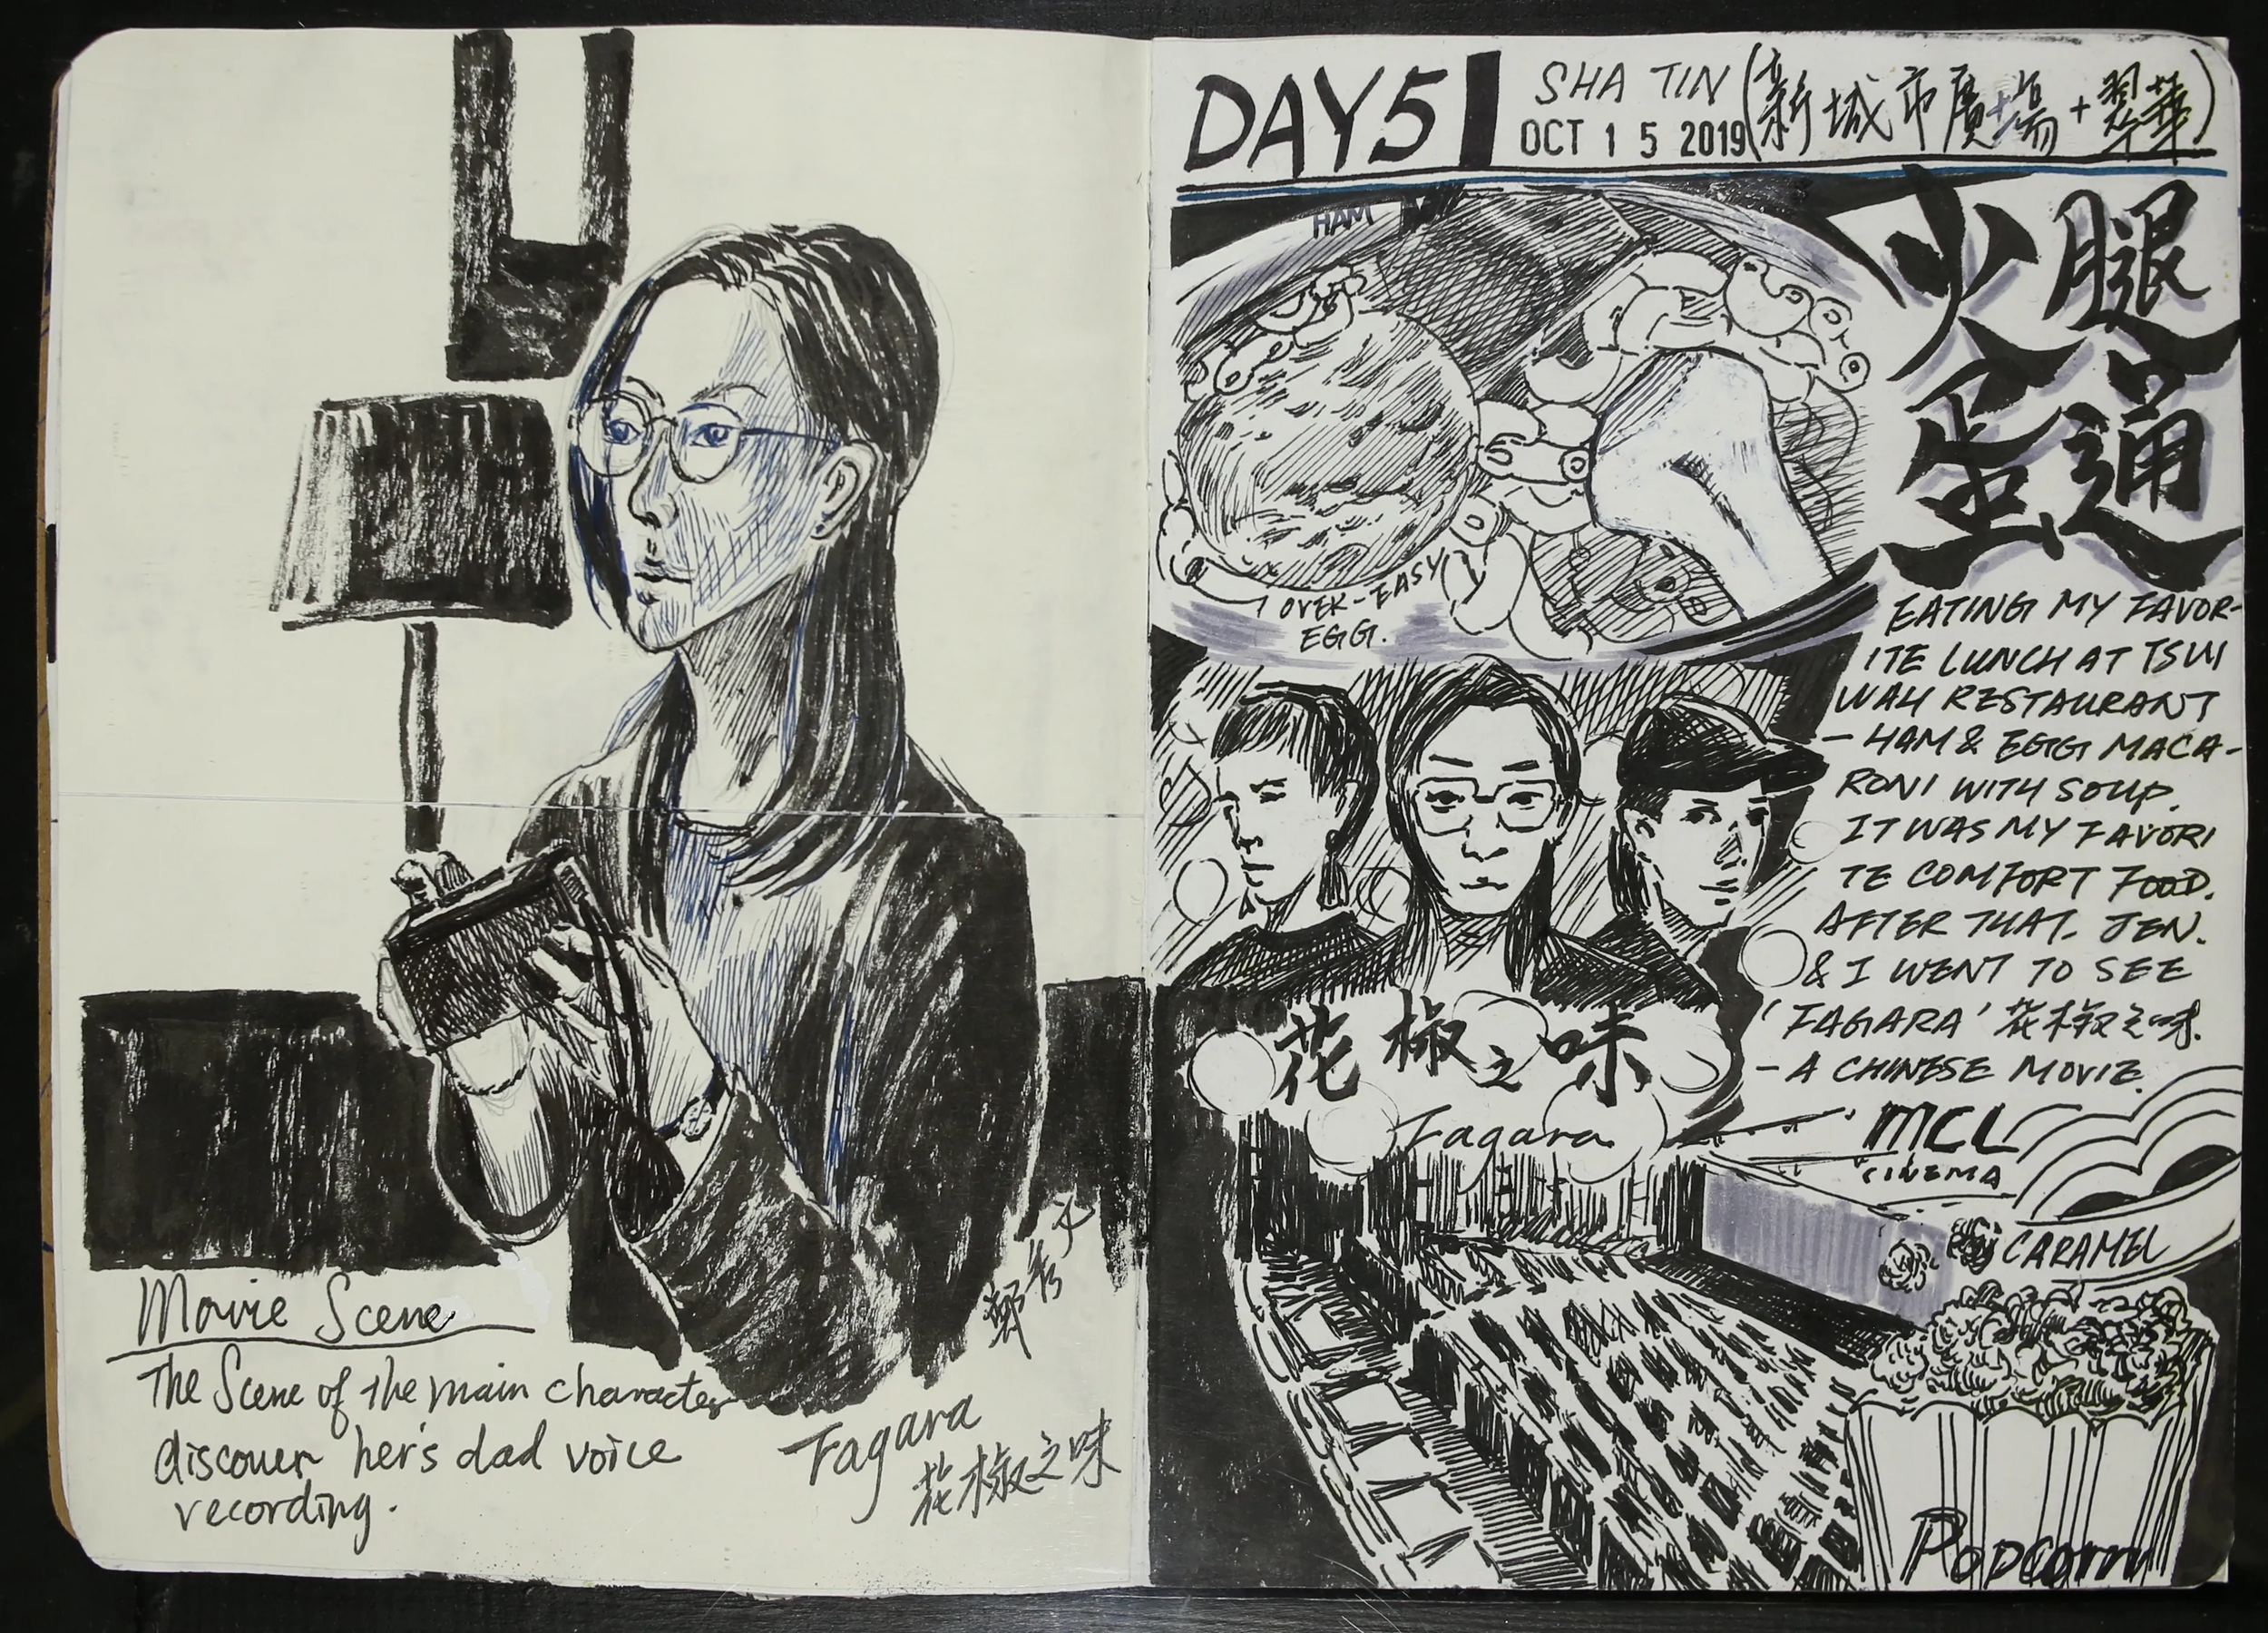 Movie Scene
The Scene of the main character
discover her's dad voice
recording.
Fagara
花椒之味
鄭秀文
DAY5
SHA TIN (新城市廣場+翠華)
OCT 1 5 2019
火腿
蛋通
HAM
OVER-EASY
EGG.
EATING MY FAVOR-
ITE LUNCH AT TSUI
WAH RESTAURANT
- HAM & EGG MACA-
RONI WITH SOUP.
IT WAS MY FAVORI
TE COMFORT FOOD.
AFTER THAT. JEN.
& I WENT TO SEE
'FAGARA' 花椒之味.
- A CHINESE MOVIE.
花椒之味
Fagara
MCL
CINEMA
CARAMEL
Popcorn